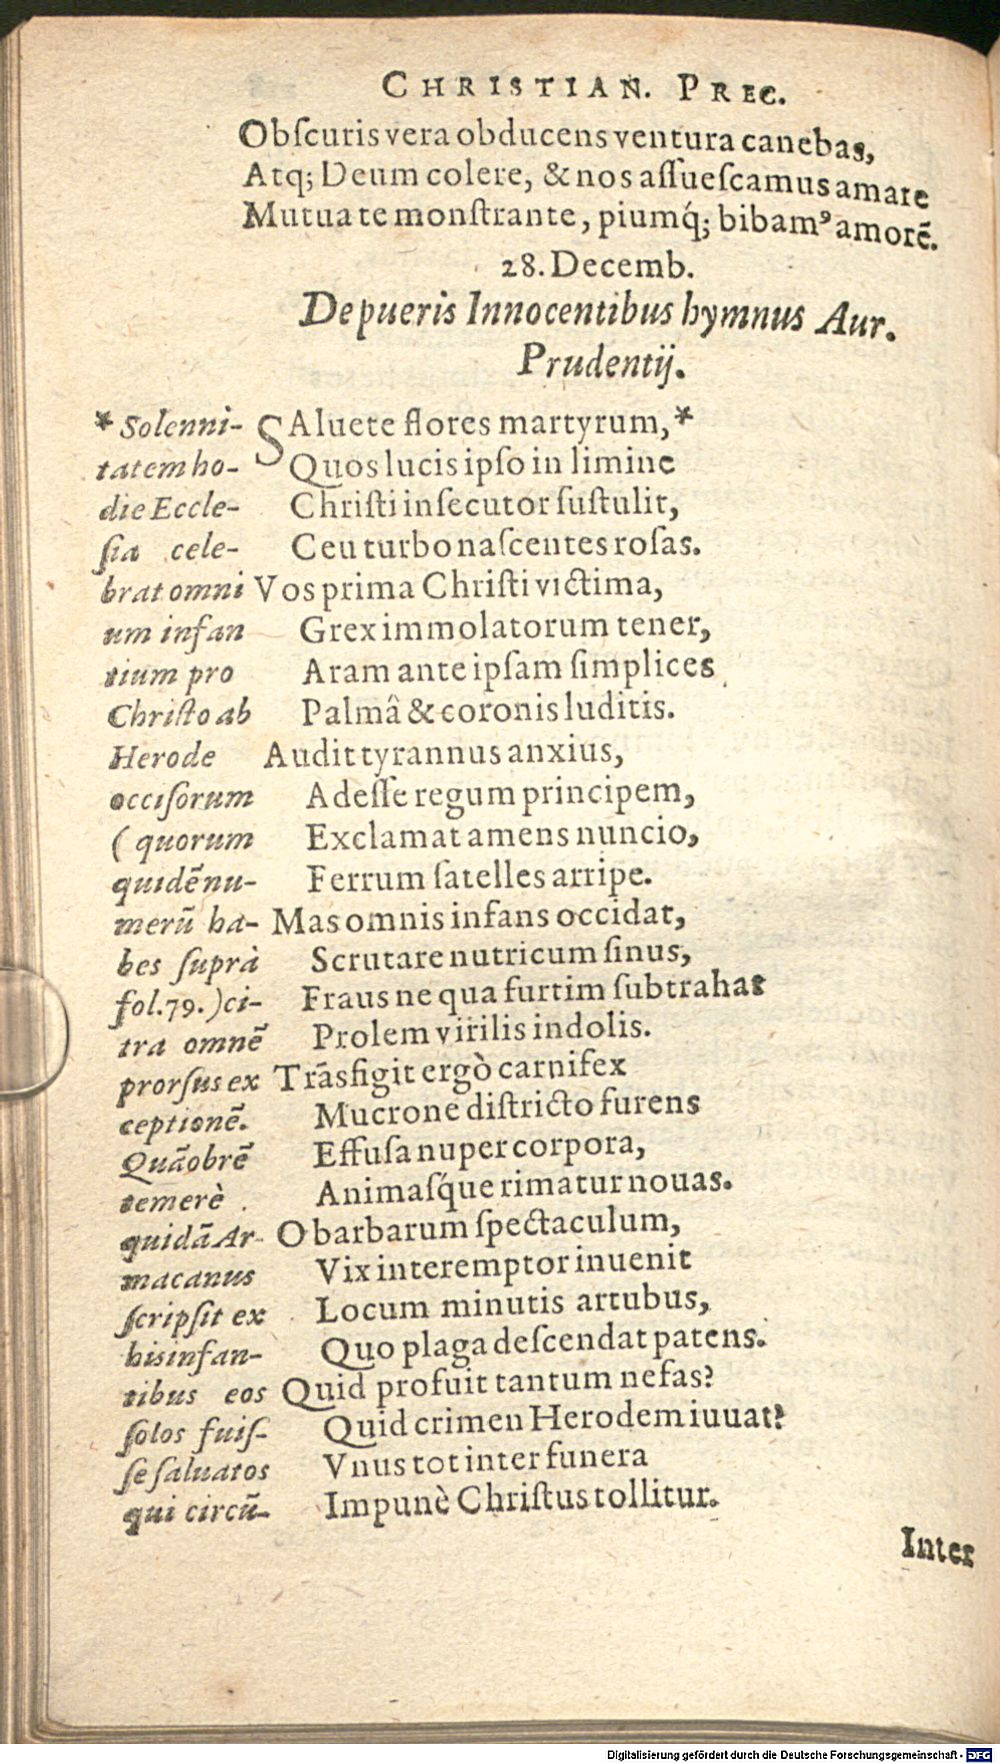 CHRISTIAN. PREC.
Obſcuris vera obducens ventura canebas,
Atq; Deum colere, & nos aſſueſcamus amare
Mutua te monſtrante, piumq́; bibamꝰ amorē.
28. Decemb.
De pueris Innocentibus hymnus Aur.
Prudentij.
SAluete flores martyrum,*
Quos lucis ipſo in limine
Chriſti inſecutor ſuſtulit,
Ceu turbo naſcentes roſas.
Vos prima Chriſti victima,
Grex immolatorum tener,
Aram ante ipſam ſimplices
Palmâ & coronis luditis.
Audit tyrannus anxius,
Adeſſe regum principem,
Exclamat amens nuncio,
Ferrum ſatelles arripe.
Mas omnis infans occidat,
Scrutare nutricum ſinus,
Fraus ne qua furtim ſubtrahat
Prolem virilis indolis.
Trāsfigit ergò carnifex
Mucrone diſtricto furens
Effuſa nuper corpora,
Animaſq́ue rimatur nouas.
O barbarum ſpectaculum,
Vix interemptor inuenit
Locum minutis artubus,
Quo plaga deſcendat patens.
Quid profuit tantum nefas?
Quid crimen Herodem iuuat?
Vnus tot inter funera
Impunè Chriſtus tollitur.
* Solenni-
tatem ho-
die Eccle-
ſia cele-
brat omni
um infan
tium pro
Chriſto ab
Herode
occiſorum
( quorum
quidē nu-
merū ha-
bes ſuprà
fol. 79. ) ci-
tra omnē
prorſus ex
ceptionē.
Quāobrē
temerè
quidā Ar-
macanus
ſcripſit ex
his infan-
tibus eos
ſolos fuiſ-
ſe ſaluatos
qui circū-
Inter
Digitalisierung gefördert durch die Deutsche Forschungsgemeinschaft - DFG